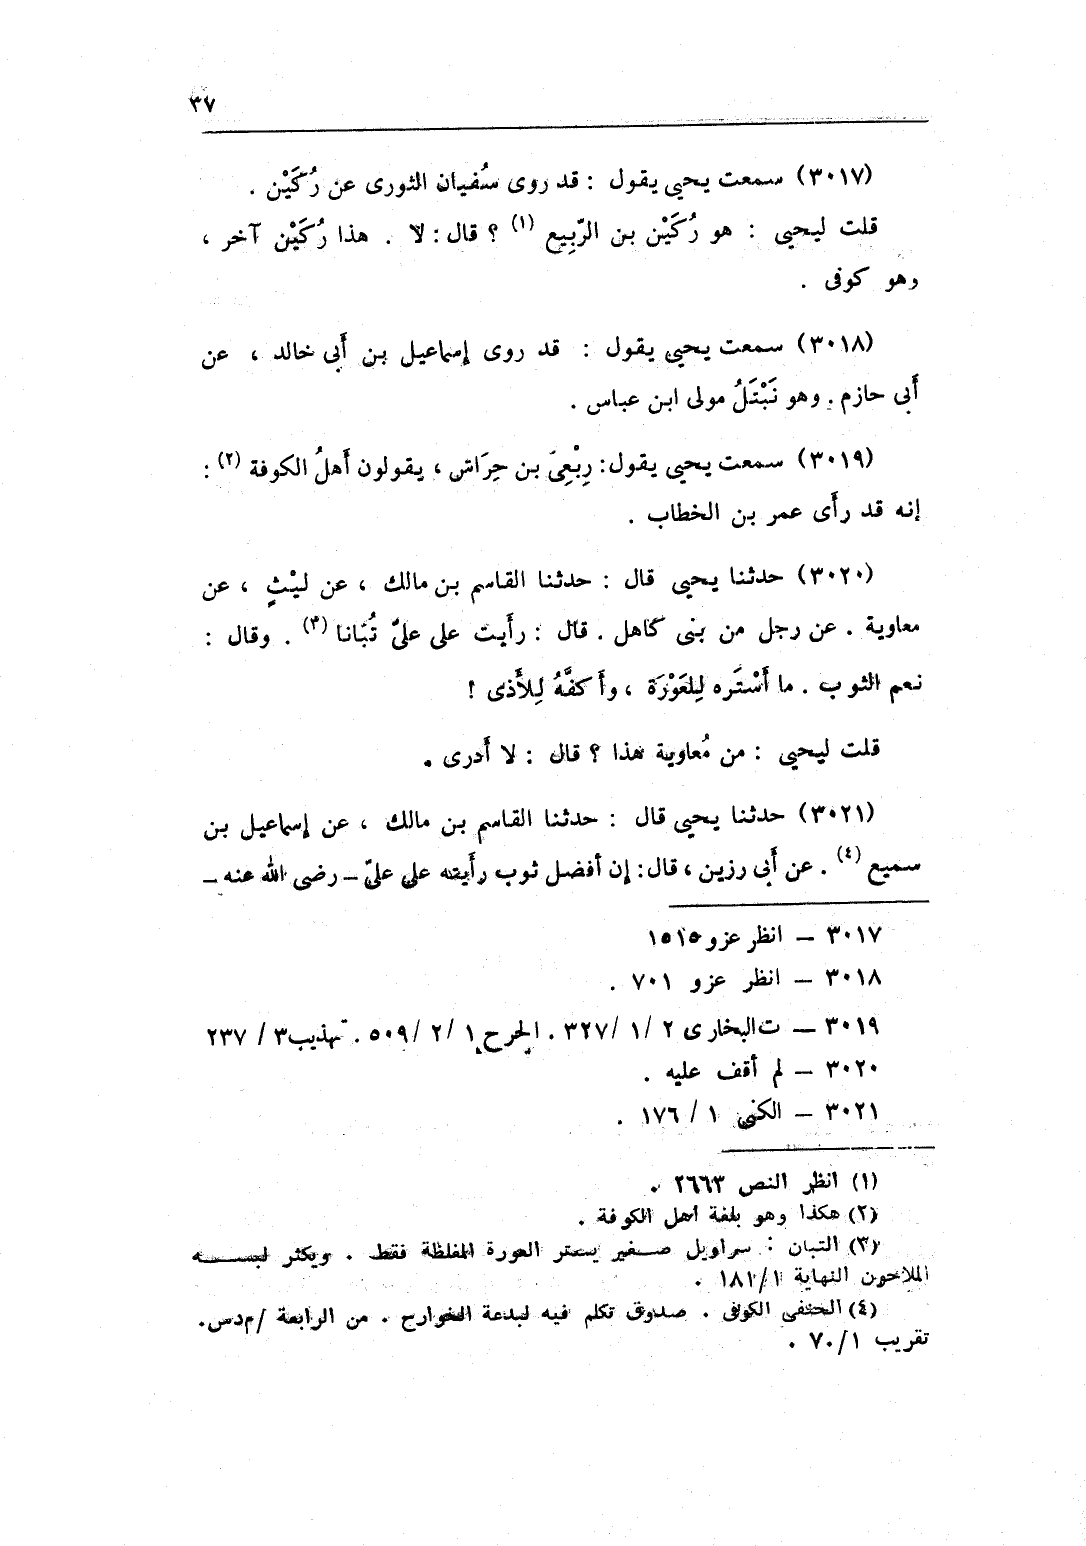 ٣٧
(٣٠١٧) سمعت يحيى يقول : قد روى سُفيان الثورى عن رُكَيْن .
قلت ليحيى : هو رُكَيْن بن الرّبيع (١) ؟ قال : لا . هذا رُكَيْن آخر ،
وهو كوفى .
(٣٠١٨) سمعت يحيى يقول : قد روى إسماعيل بن أَبى خالد ، عن
أَبى حازم . وهو نَبْتَلُ مولى ابن عباس .
(٣٠١٩) سمعت يحيى يقول : رِبْعِىَ بن حِرَاش ، يقولون أَهلُ الكوفة (٢) :
إنه قد رأَى عمر بن الخطاب .
(٣٠٢٠) حدثنا يحيى قال : حدثنا القاسم بن مالك ، عن ليْثٍ ، عن
معاوية . عن رجل من بنى كاهل . قال : رأَيت على علىّ تُبّانا (٣) . وقال :
نعم الثوب . ما أَسْتَره لِلعَوْرَة ، وأَكفَّهُ لِلأَذى !
قلت ليحيى : من مُعاوية هذا ؟ قال : لا أَدرى .
(٣٠٢١) حدثنا يحيى قال : حدثنا القاسم بن مالك ، عن إسماعيل بن
سميع (٤) . عن أَبى رزين ، قال : إن أفضل ثوب رأَيته على علىّ – رضى الله عنه –
٣٠١٧ – انظر عزو ١٥١٥
٣٠١٨ – انظر عزو ٧٠١ .
٣٠١٩ – ت البخارى ٢ /١ /٣٢٧ . الجرح ١ /٢ /٥٠٩ . تهذيب ٣ / ٢٣٧
٣٠٢٠ – لم أقف عليه .
٣٠٢١ – الكنى ١ / ١٧٦ .
(١) انظر النص ٢٦٦٣ .
(٢) هكذا وهو بلغة أهل الكوفة .
(٣) التبان : سراويل صغير يستر العورة المغلظة فقط . ويكثر لبسه
الملاحون النهاية ١/ ١٨١ .
(٤) الحنفى الكوفى . صدوق تكلم فيه لبدعة الخوارج . من الرابعة /م د س .
تقريب ١/ ٧٠ .